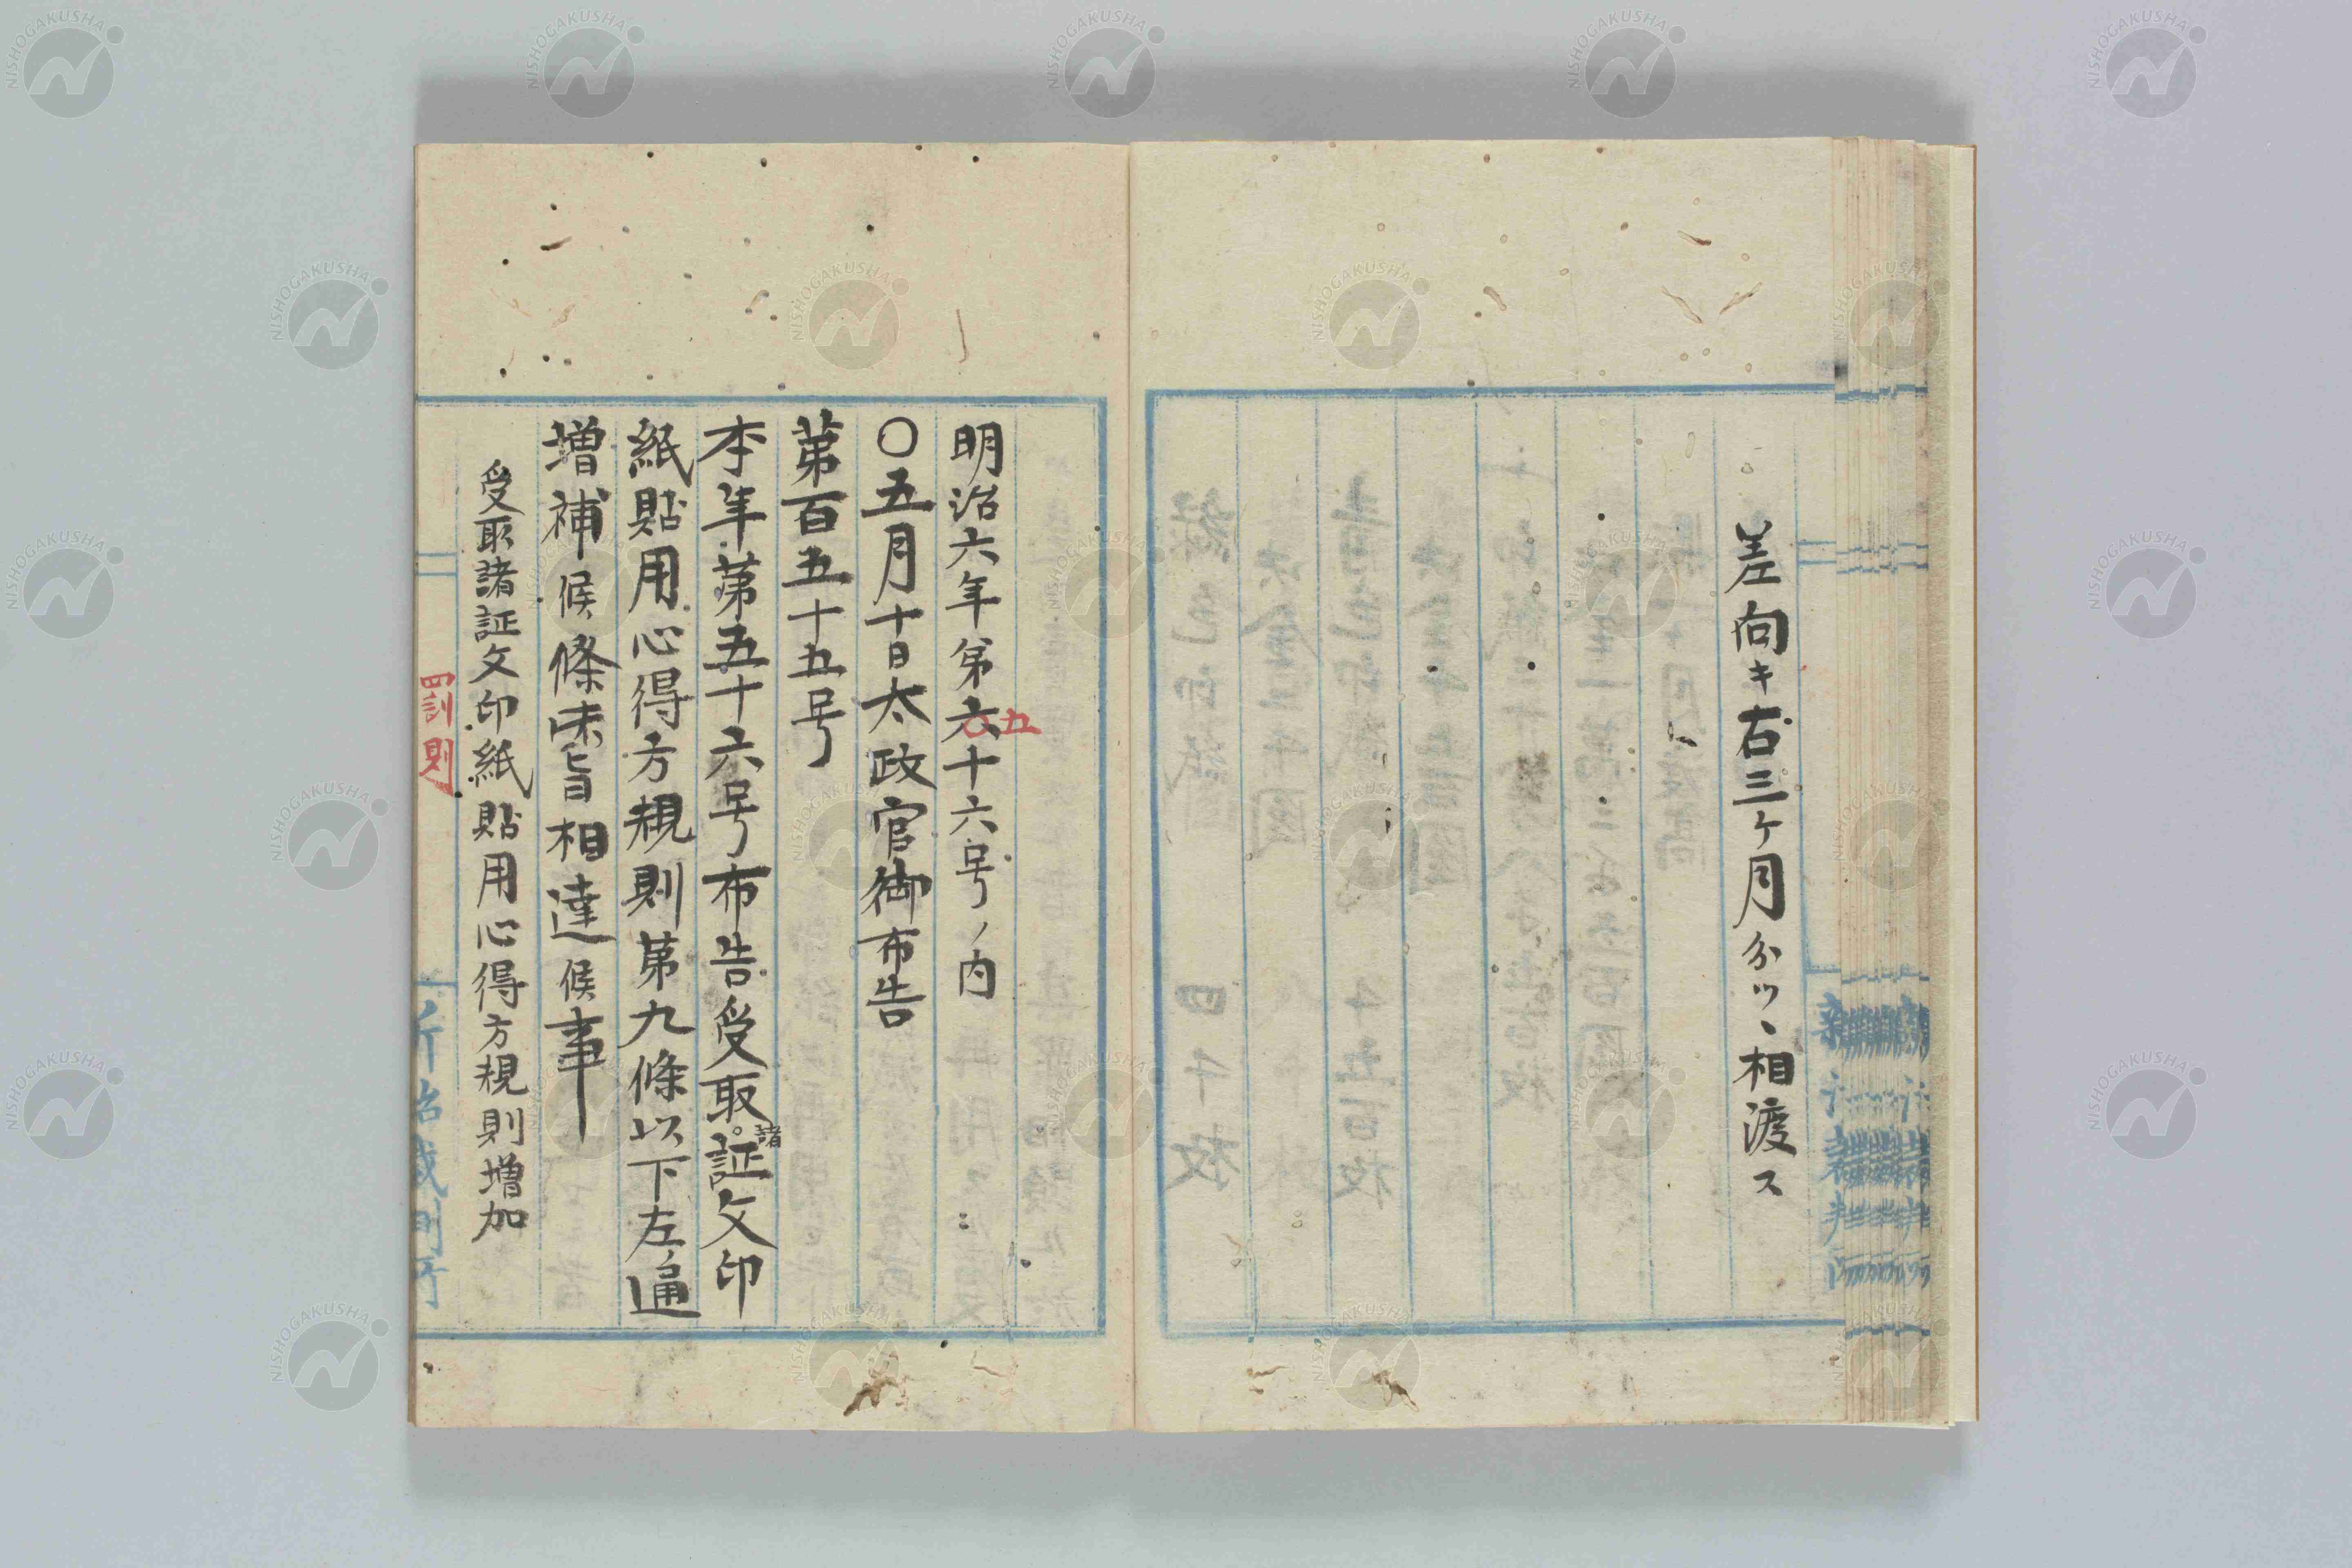 差向キ右三ケ月分ツヽ相渡ス
明治六年第六十六号ノ内
五
〇五月十日太政官御布告
第百五十五号
本年第五十六号布告受取諸証文印
紙貼用心得方規則第九條以下左ノ通
増補候條此旨相達候事
受取諸証文印紙貼用心得方規則増加
罰則
NISHOGAKUSHA